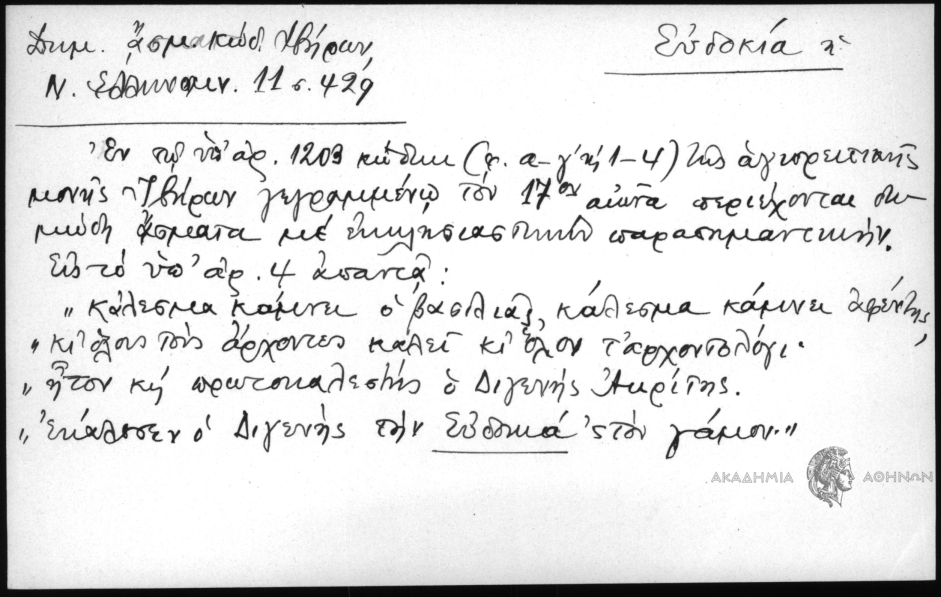 Δημ. ᾄσμ. κώδ. Ἰβήρων
Ν. Ἑλληνομν. 11 σ. 429
Εὐδοκία ἡ
Ἐν τῷ ὑπ' ἀρ. 1203 κώδικι (φ. α-γ' καὶ 1-4) τῆς ἁγιορειτικῆς
μονῆς Ἰβήρων γεγραμμένῳ τὸν 17ον αἰῶνα περιέχονται δη-
μώδη ᾄσματα μὲ ἐκκλησιαστικὴν παρασημαντικήν.
Εἰς τὸ ὑπ' ἀρ. 4 ἀπαντᾷ:
„ κάλεσμα κάμνει ὁ βασιλιάς, κάλεσμα κάμνει ἀφέντης,
„ κι' ὅλους τοὺς ἄρχοντες καλεῖ κι' ὅλον τ' ἀρχοντολόγι·
„ ἦτον κὴ πρωτοκαλεστὴς ὁ Διγενὴς Ἀκρίτης.
„ Ἐκάλεσεν ὁ Διγενὴς τὴν Εὐδοκιά 'ς τὸν γάμον."
ΑΚΑΔΗΜΙΑ ΑΘΗΝΩΝ